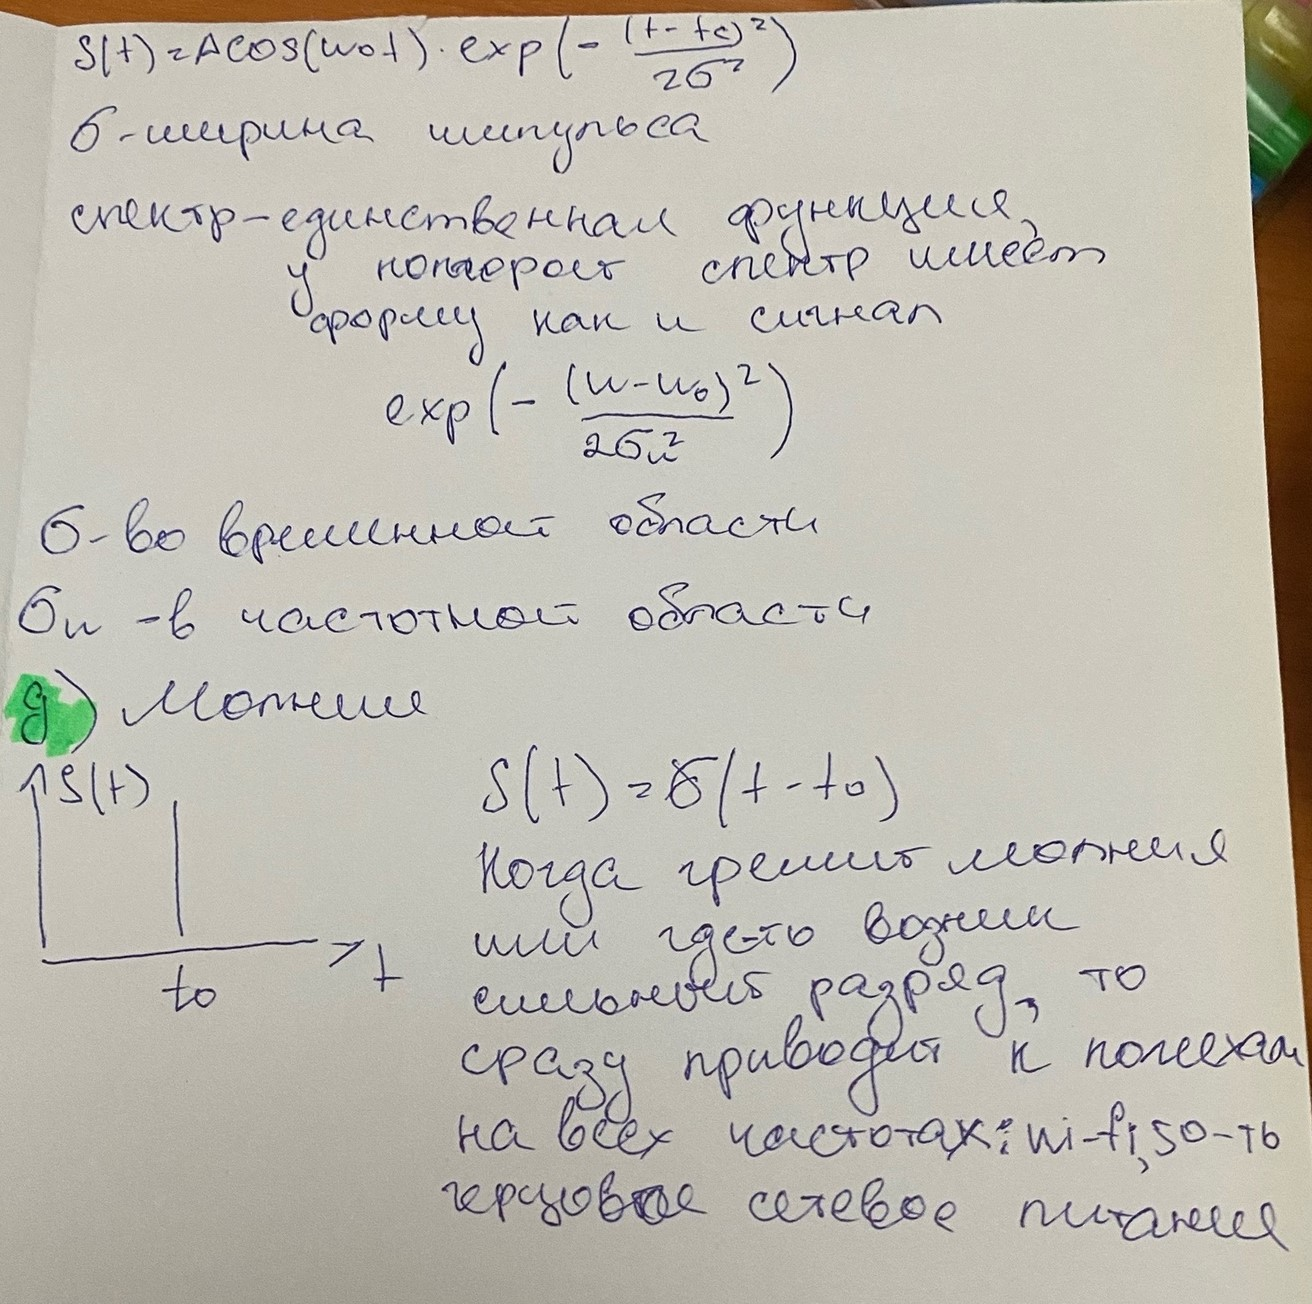 S(t)=Acos(ω₀t)·exp(-(t-tc)²/2σ²)
σ-ширина импульса
спектр-единственная функция,
у которой спектр имеет
форму как и сигнал
exp(-(ω-ω₀)²/2σω²)
σ-во временной области
σω -в частотной области
д) Молния
S(t)
S(t)=δ(t-t₀)
t
t₀
Когда гремит молния
или где-то возник
сильный разряд, то
сразу приводит к помехам
на всех частотах: wi-fi, 50-ть
герцовое сетевое питание